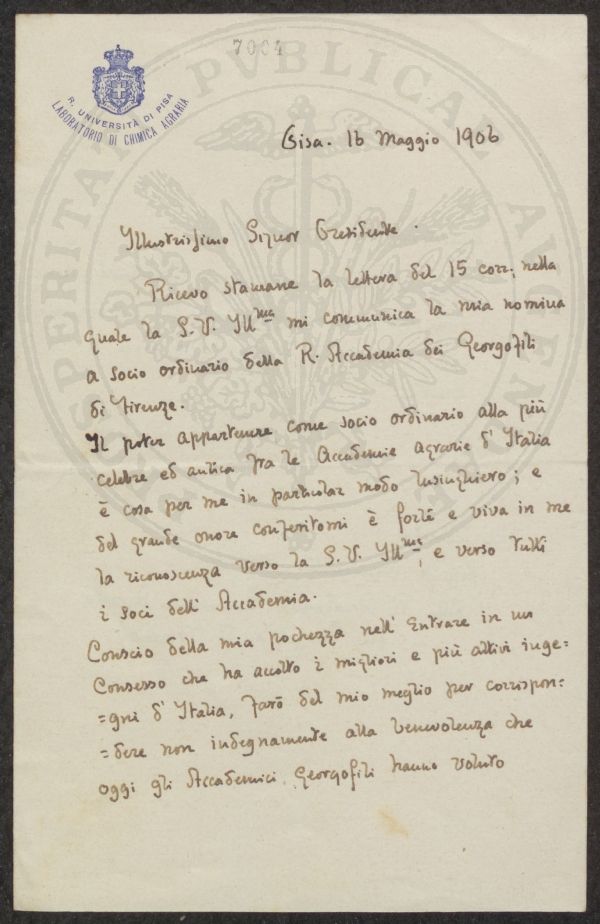 7004
R. UNIVERSITÀ DI PISA
LABORATORIO DI CHIMICA AGRARIA
PROSPERITATI PVBLICAE AVGENDAE
Pisa. 16 Maggio 1906
Illustrissimo Signor Presidente.
Ricevo stamane la lettera del 15 corr; nella
quale la S. V. Ill^ma mi communica la mia nomina
a socio ordinario della R. Accademia dei Georgofili
di Firenze.
Il poter appartenere come socio ordinario alla più
celebre ed antica fra le Accademie agrarie d'Italia
è cosa per me in particolar modo lusinghiero; e
del grande onore conferitomi è forte e viva in me
la riconoscenza verso la S. V. Ill^ma, e verso tutti
i soci dell'Accademia.
Conscio della mia pochezza nell'entrare in un
Consesso che ha accolto i migliori e più attivi inge=
=gni d'Italia, farò del mio meglio per corrispon=
=dere non indegnamente alla benevolenza che
oggi gli Accademici Georgofili hanno voluto